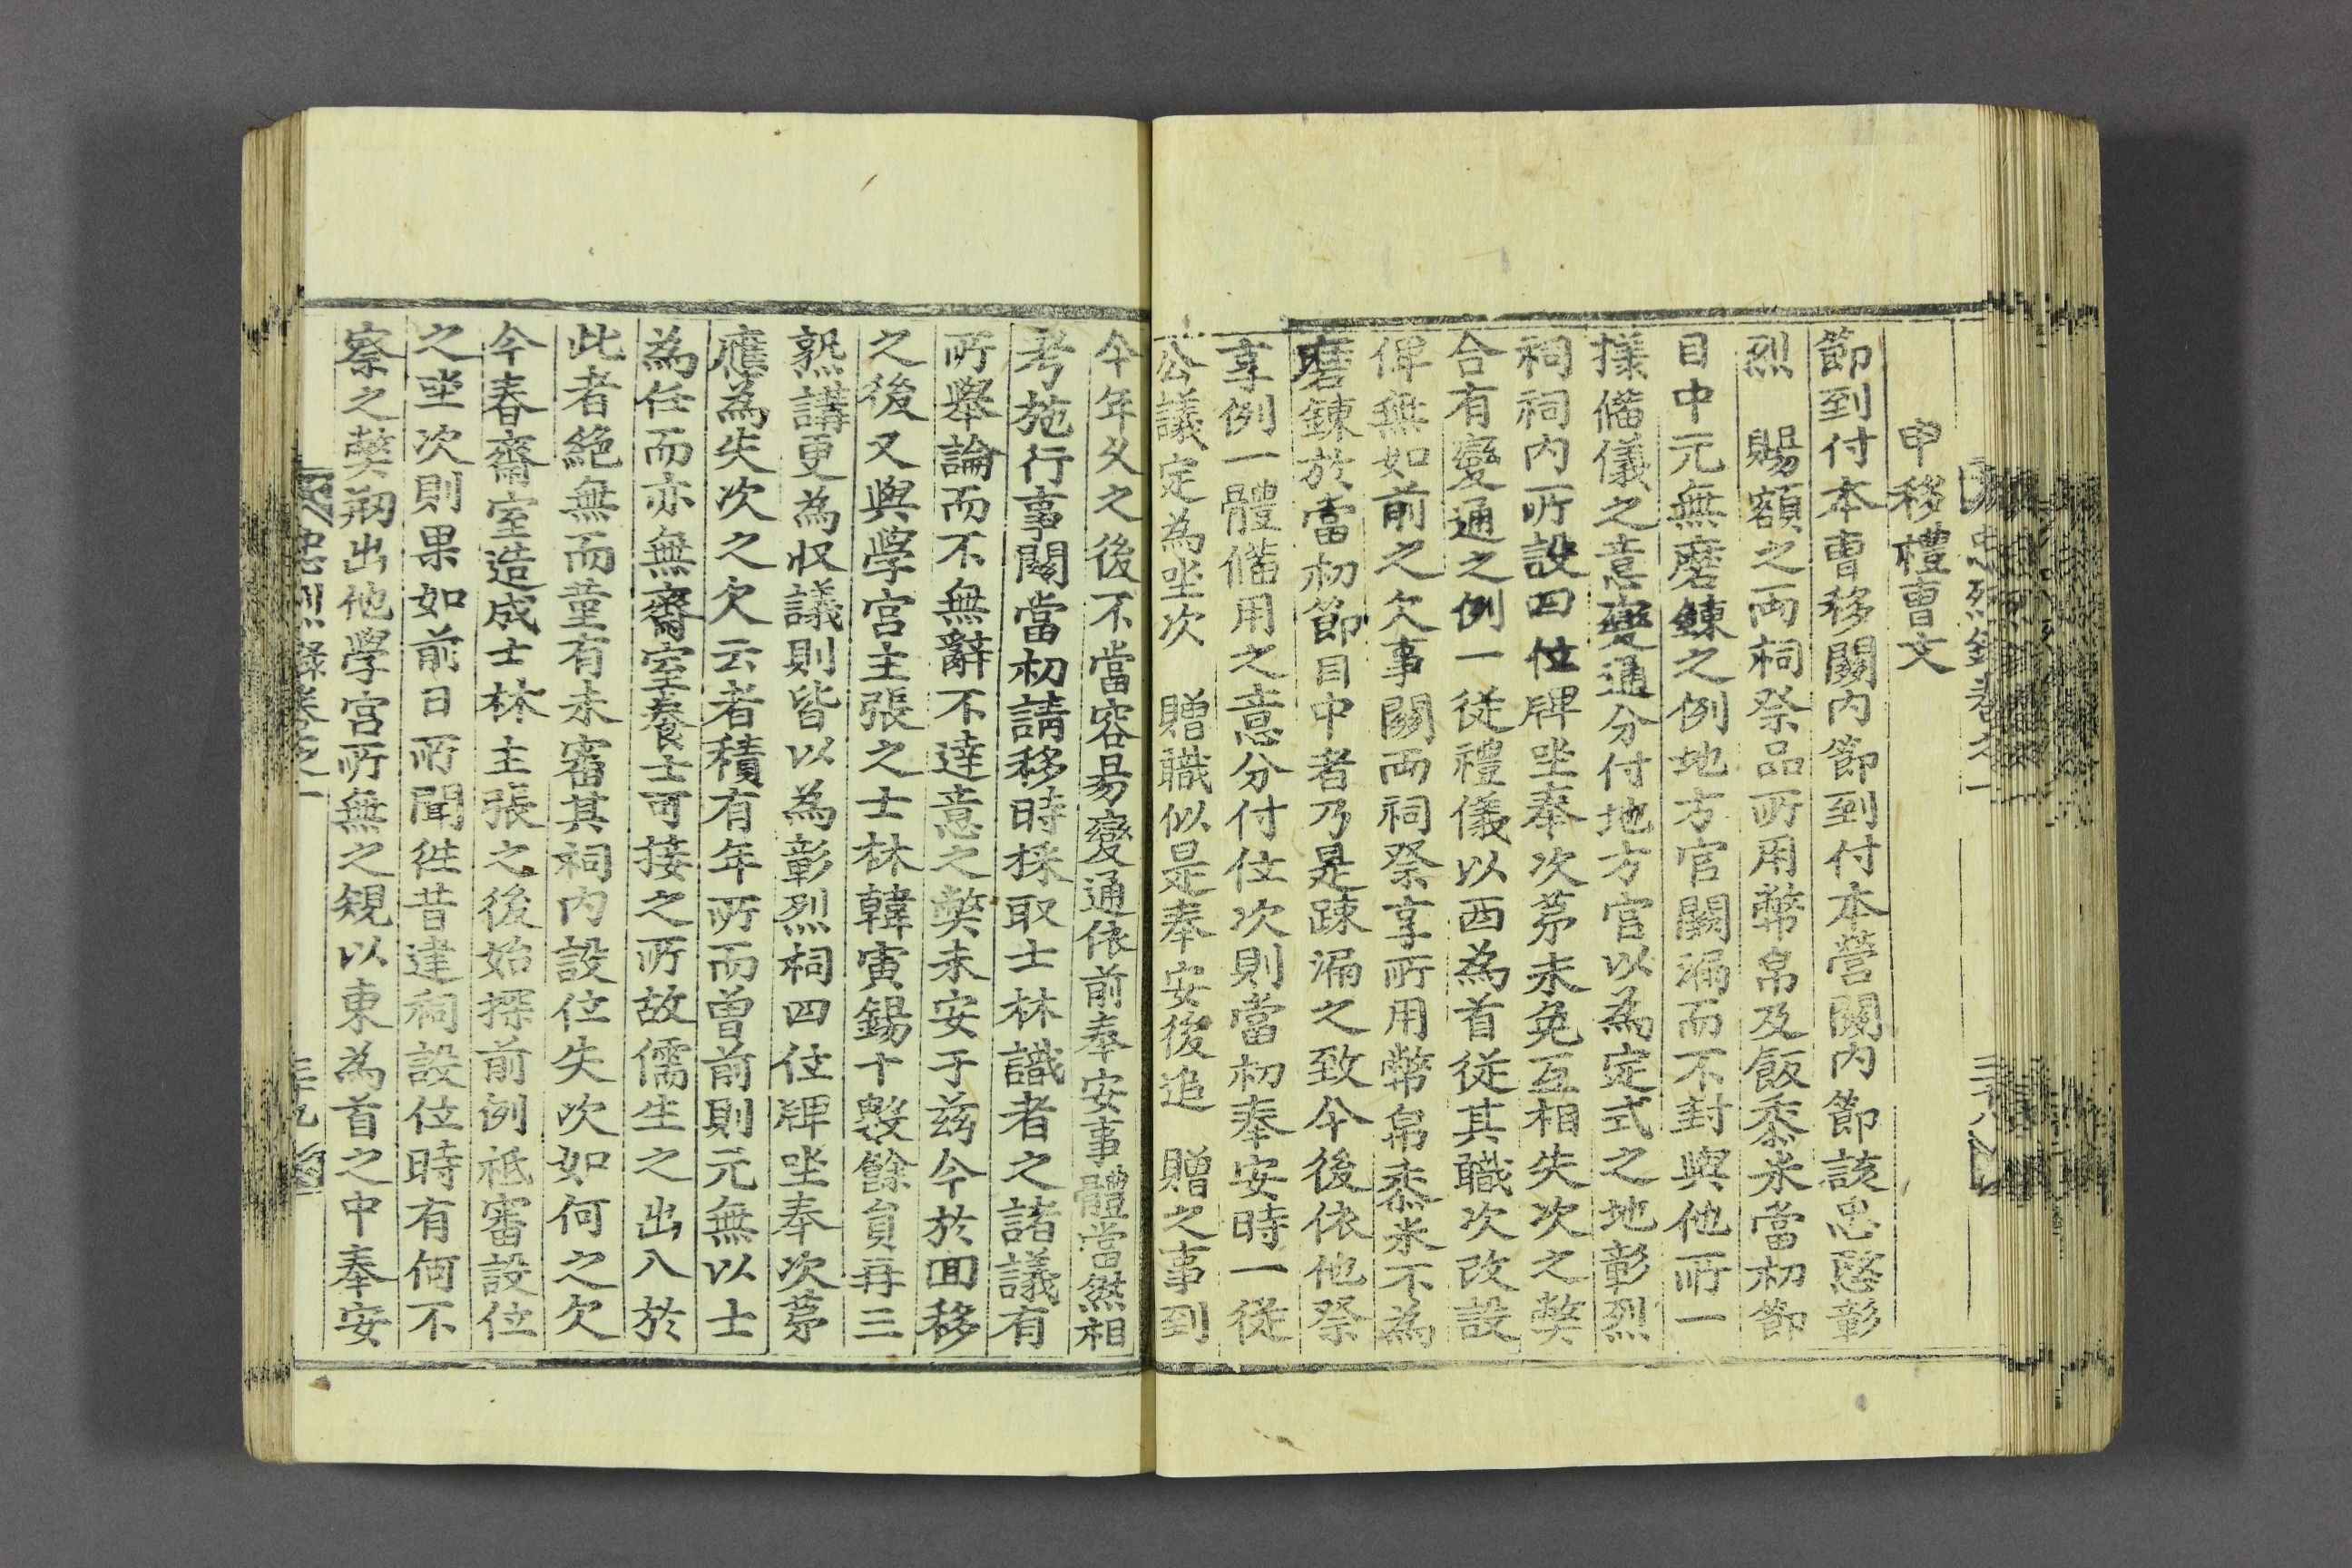 申移禮曹文
節到付本曹移關內節到付本營關內節該忠愍彰
烈　賜額之兩祠祭品所用幣帛及飯黍米當初節
目中元無磨鍊之例地方官闕漏而不封與他所一
㨾備儀之意變通分付地方官以為定式之地彰烈
祠祠內所設四位牌坐奉次茅未免互相失次之獘
合有變通之例一從禮儀以西為首從其職次改設
俾無如前之欠事關兩祠祭享所用幣帛黍米不為
磨鍊於當初節目中者乃是踈漏之致今後依他祭
享例一體備用之意分付位次則當初奉安時一從
公議定為坐次　贈職似是奉安後追　贈之事到
今年久之後不當容易變通依前奉安事體當然相
考施行事關當初請移時採取士林識者之諸議有
所舉論而不無辭不達意之獘未安于玆今於回移
之後又與學宮主張之士林韓寅錫十數餘員再三
熟講更為収議則皆以為彰烈祠四位牌坐奉次茅
應為失次之欠云者積有年所而曾前則元無以士
為任而亦無齋室養士可接之所故儒生之出入於
此者絕無而菫有未審其祠內設位失次如何之欠
今春齋室造成士林主張之後始探前例祗審設位
之坐次則果如前日所聞徃昔建祠設位時有何不
察之獘刱出他學宮所無之規以東為首之中奉安
忠烈錄卷之一